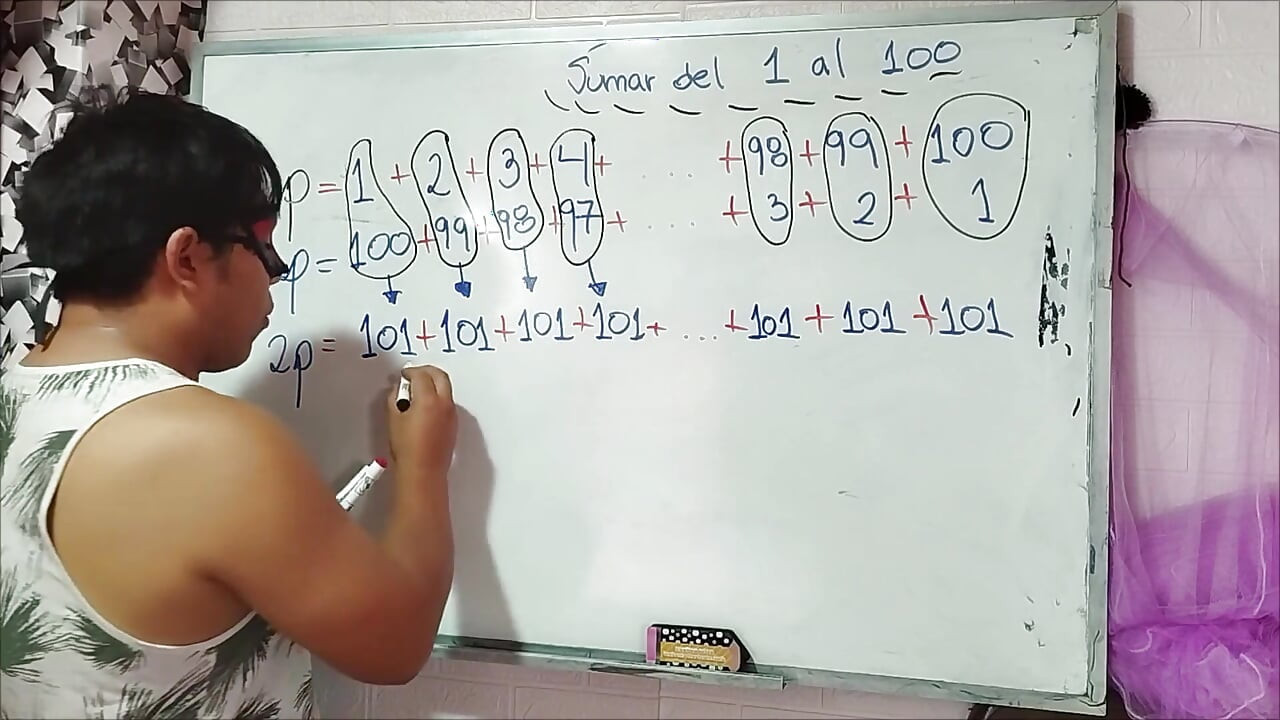 Sumar del 1 al 100
p = 1 + 2 + 3 + 4 + .... + 98 + 99 + 100
p = 100 + 99 + 98 + 97 + .... + 3 + 2 + 1
2p = 101 + 101 + 101 + 101 + ... + 101 + 101 + 101